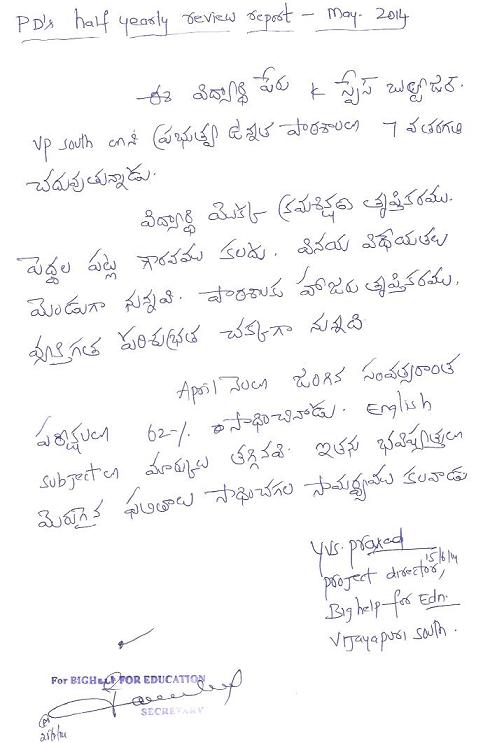 PD's half yearly review report - May. 2014
ఈ విద్యార్థి పేరు K
VP South లోని ప్రభుత్వ ఉన్నత పాఠశాలలో 7 వ తరగతి
చదువుతున్నాడు.
విద్యార్థి యొక్క క్రమశిక్షణ తృప్తికరము.
పెద్దల పట్ల గౌరవము కలదు. వినయ విధేయతలు
మెండుగా నున్నవి. పాఠశాలకు హాజరు తృప్తికరము.
వ్యక్తిగత పరిశుభ్రత చక్కగా నున్నది
April నెలలో జరిగిన సంవత్సరాంత
పరీక్షలలో 62% సాధించినాడు. English
subject లో మార్కులు తగ్గినవి. ఇతను భవిష్యత్తులో
మెరుగైన ఫలితాలు సాధించగల సామర్థ్యము కలవాడు
YVS. Prasad
15/6/14
project director,
Bighelp for Edn.
Vijayapuri South.
For BIGHELP FOR EDUCATION
SECRETARY